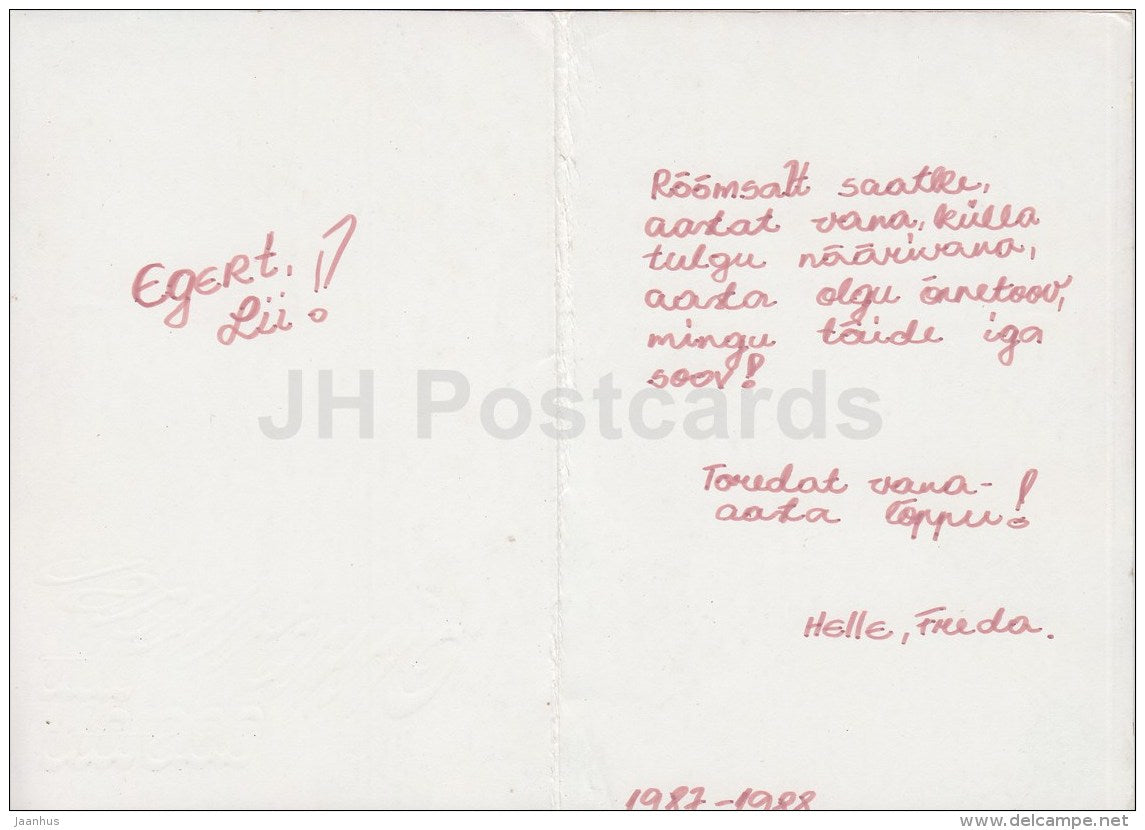 Egert,
Lii!
Rõõmsalt saatke,
aastat vana, külla
tulgu näärivana,
aasta olgu õnnetoov,
mingu täide iga
soov!
Toredat vana-
aasta lõppu!
Helle, Freda.
1987-1988
JH Postcards
Jaanhus
www.delcampe.net